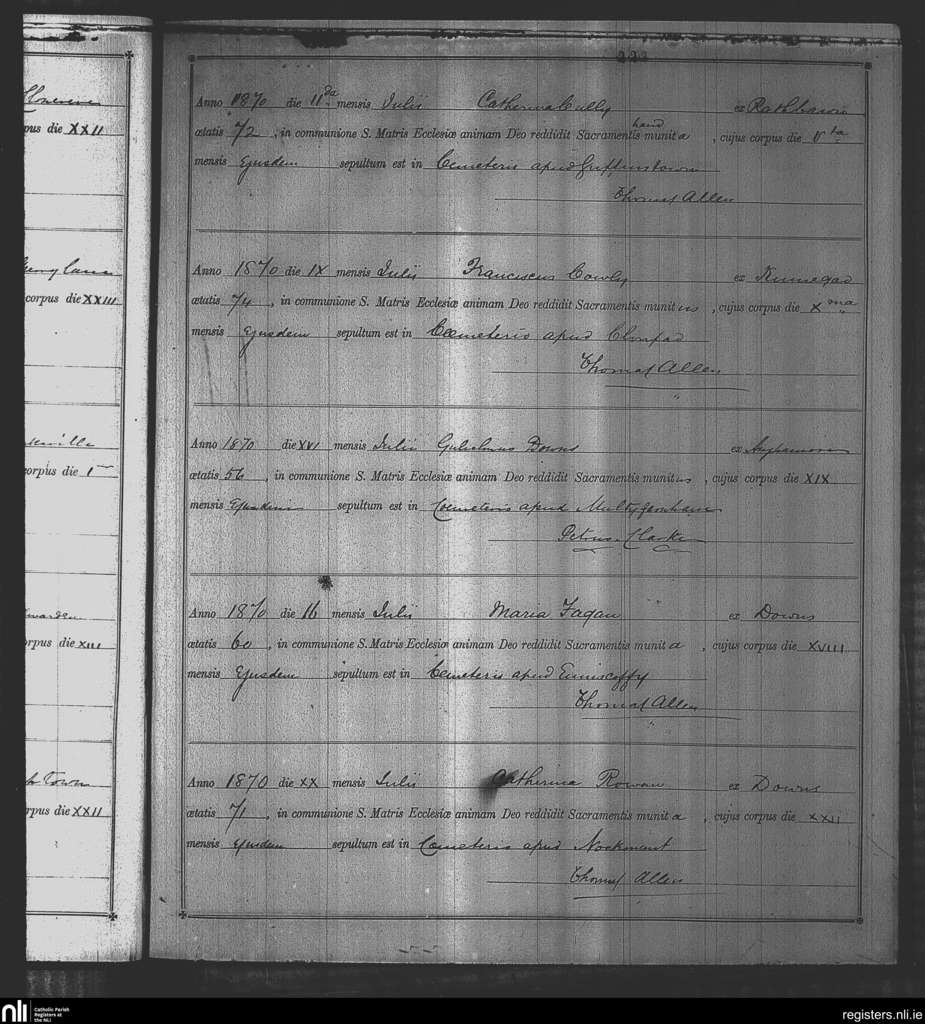 xpus die XXII
corpus die XXIII
corpus die 1
orpus die XIII
Town
orpus die XXII
222
Anno 1870 die 11da mensis Julii Catherina Cully ex Rathbawn
ætatis 72, in communione S. Matris Ecclesiæ animam Deo reddidit Sacramentis haud munita, cujus corpus die Vta
mensis Ejusdem sepultum est in Cemeteris apud Griffinstown
Thomas Allen
Anno 1870 die IX mensis Julii Franciscus Cowly ex Kinnegad
ætatis 74, in communione S. Matris Ecclesiæ animam Deo reddidit Sacramentis munitus, cujus corpus die Xma
mensis Ejusdem sepultum est in Cœmeteris apud Clonfad
Thomas Allen
Anno 1870 die XVI mensis Julii Gulielmus Downs ex
ætatis 56, in communione S. Matris Ecclesiæ animam Deo reddidit Sacramentis munitus, cujus corpus die XIX
mensis Ejusdem sepultum est in Cœmeteris apud Multyfarnham
Petrus Clarke
Anno 1870 die 16 mensis Julii Maria Fagan ex Downs
ætatis 60, in communione S. Matris Ecclesiæ animam Deo reddidit Sacramentis munita, cujus corpus die XVIII
mensis Ejusdem sepultum est in Cemeteris apud Enniscoffy
Thomas Allen
Anno 1870 die XX mensis Julii Catherina Rowan ex Downs
ætatis 71, in communione S. Matris Ecclesiæ animam Deo reddidit Sacramentis munita, cujus corpus die XXII
mensis Ejusdem sepultum est in Cœmeteris apud Nockmant
Thomas Allen
nli Catholic Parish Registers at the NLI
registers.nli.ie